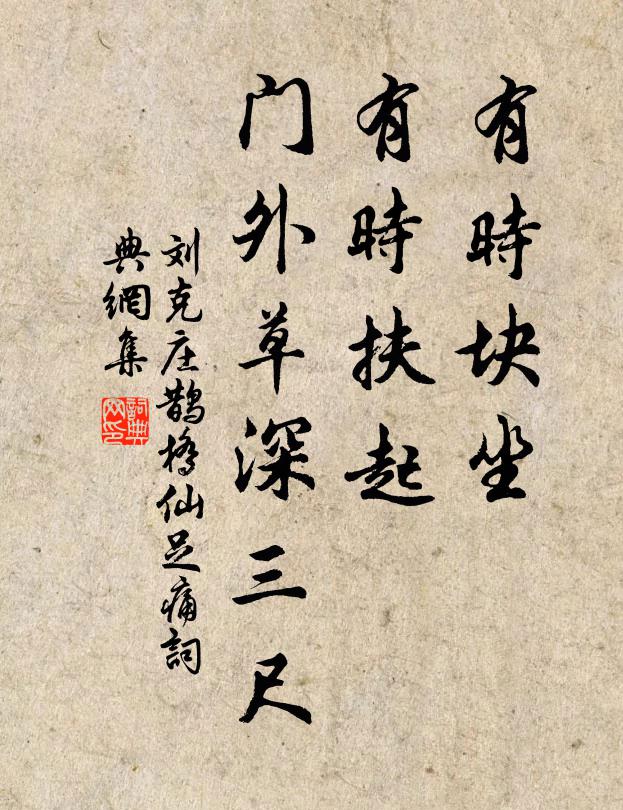 有時块坐
有時扶起
门外草深三尺
刘克庄鹊橋仙足痛詞
典網集
詞典
网印